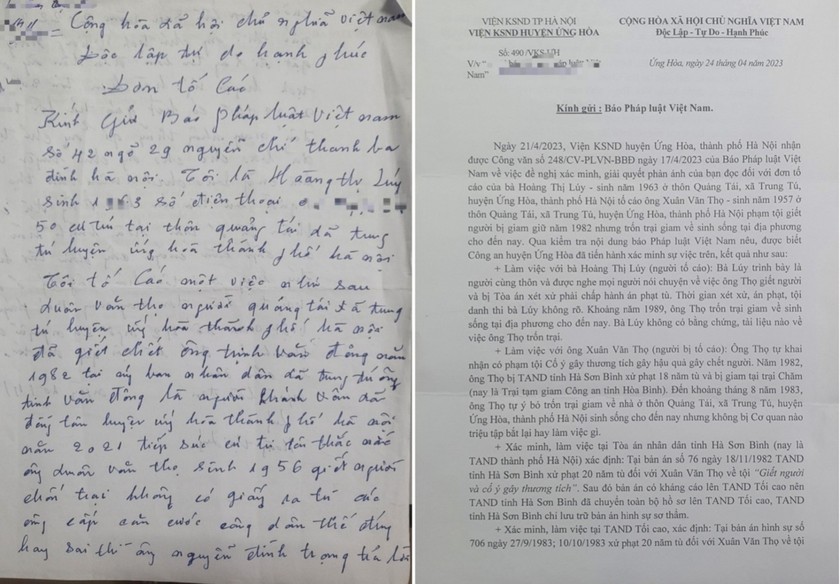 Cộng hòa xã hội chủ nghĩa việt nam
Độc lập tự do hạnh phúc
Đơn tố Cáo
Kính Gửi Báo pháp luật việt nam
số 42 ngõ 29 nguyễn chí thanh ba
đình hà nội. Tôi là Hoàng thị Lúy
sinh 1963 số điện thoại 0
50 cư trú tại thôn quảng tái xã trung
tú huyện ứng hòa thành phố hà nội
Tôi tố Cáo một việc như sau
xuân văn thọ người quảng tái xã trung
tú huyện ứng hòa thành phố hà nội
đã giết chết ông trinh văn đông năm
1982 tại ủy ban nhân dân xã trung tú ông
trinh văn đông là người khánh vân xã
đồng tân huyện ứng hòa thành phố hà nội
năm 2021 tiếp súc cử tri tôi thắc mắc
ông xuân văn thọ sinh 1956 giết người
chốn trại không có giấy ra tù các
ông cấp căn cước công dân thế đúng
hay sai thì ông nguyễn đình trọng trả lời
VIỆN KSND TP HÀ NỘI
VIỆN KSND HUYỆN ỨNG HÒA
Số: 490 /VKS-UH
V/v "
Nam"
CỘNG HÒA XÃ HỘI CHỦ NGHĨA VIỆT NAM
Độc Lập - Tự Do - Hạnh Phúc
Ứng Hòa, ngày 24 tháng 04 năm 2023
Kính gửi : Báo Pháp luật Việt Nam.
Ngày 21/4/2023, Viện KSND huyện Ứng Hòa, thành phố Hà Nội nhận
được Công văn số 248/CV-PLVN-BBĐ ngày 17/4/2023 của Báo Pháp luật Việt
Nam về việc đề nghị xác minh, giải quyết phản ánh của bạn đọc đối với đơn tố
cáo của bà Hoàng Thị Lúy - sinh năm 1963 ở thôn Quảng Tái, xã Trung Tú,
huyện Ứng Hòa, thành phố Hà Nội tố cáo ông Xuân Văn Thọ - sinh năm 1957 ở
thôn Quảng Tái, xã Trung Tú, huyện Ứng Hòa, thành phố Hà Nội phạm tội giết
người bị giam giữ năm 1982 nhưng trốn trại giam về sinh sống tại địa phương
cho đến nay. Qua kiểm tra nội dung báo Pháp luật Việt Nam nêu, được biết
Công an huyện Ứng Hòa đã tiến hành xác minh sự việc trên, kết quả như sau:
+ Làm việc với bà Hoàng Thị Lúy (người tố cáo): Bà Lúy trình bày là
người cùng thôn và được nghe mọi người nói chuyện về việc ông Thọ giết người
và bị Tòa án xét xử phải chấp hành án phạt tù. Thời gian xét xử, án phạt, tội
danh thì bà Lúy không rõ. Khoảng năm 1989, ông Thọ trốn trại giam về sinh
sống tại địa phương cho đến nay. Bà Lúy không có bằng chứng, tài liệu nào về
việc ông Thọ trốn trại.
+ Làm việc với ông Xuân Văn Thọ (người bị tố cáo): Ông Thọ tự khai
nhận có phạm tội Cố ý gây thương tích gây hậu quả chết người. Năm 1982,
ông Thọ bị TAND tỉnh Hà Sơn Bình xử phạt 18 năm tù và bị giam tại trại Chăm
(nay là Trại tạm giam Công an tỉnh Hòa Bình). Đến khoảng tháng 8 năm 1983,
ông Thọ tự ý bỏ trốn trại giam về nhà ở thôn Quảng Tái, xã Trung Tú, huyện
Ứng Hòa, thành phố Hà Nội sinh sống cho đến nay nhưng không bị Cơ quan nào
triệu tập bắt lại hay làm việc gì.
+ Xác minh, làm việc tại Tòa án nhân dân tỉnh Hà Sơn Bình (nay là
TAND thành phố Hà Nội) xác định: Tại bản án số 76 ngày 18/11/1982 TAND
tỉnh Hà Sơn Bình xử phạt 20 năm tù đối với Xuân Văn Thọ về tội "Giết người
và cố ý gây thương tích". Sau đó bản án có kháng cáo lên TAND Tối cao nên
TAND tỉnh Hà Sơn Bình đã chuyển toàn bộ hồ sơ lên TAND Tối cao, TAND
tỉnh Hà Sơn Bình chỉ lưu trữ bản án hình sự sơ thẩm.
+ Xác minh, làm việc tại TAND Tối cao, xác định: Tại bản án hình sự số
706 ngày 27/9/1983; 10/10/1983 xử phạt 20 năm tù đối với Xuân Văn Thọ về tội